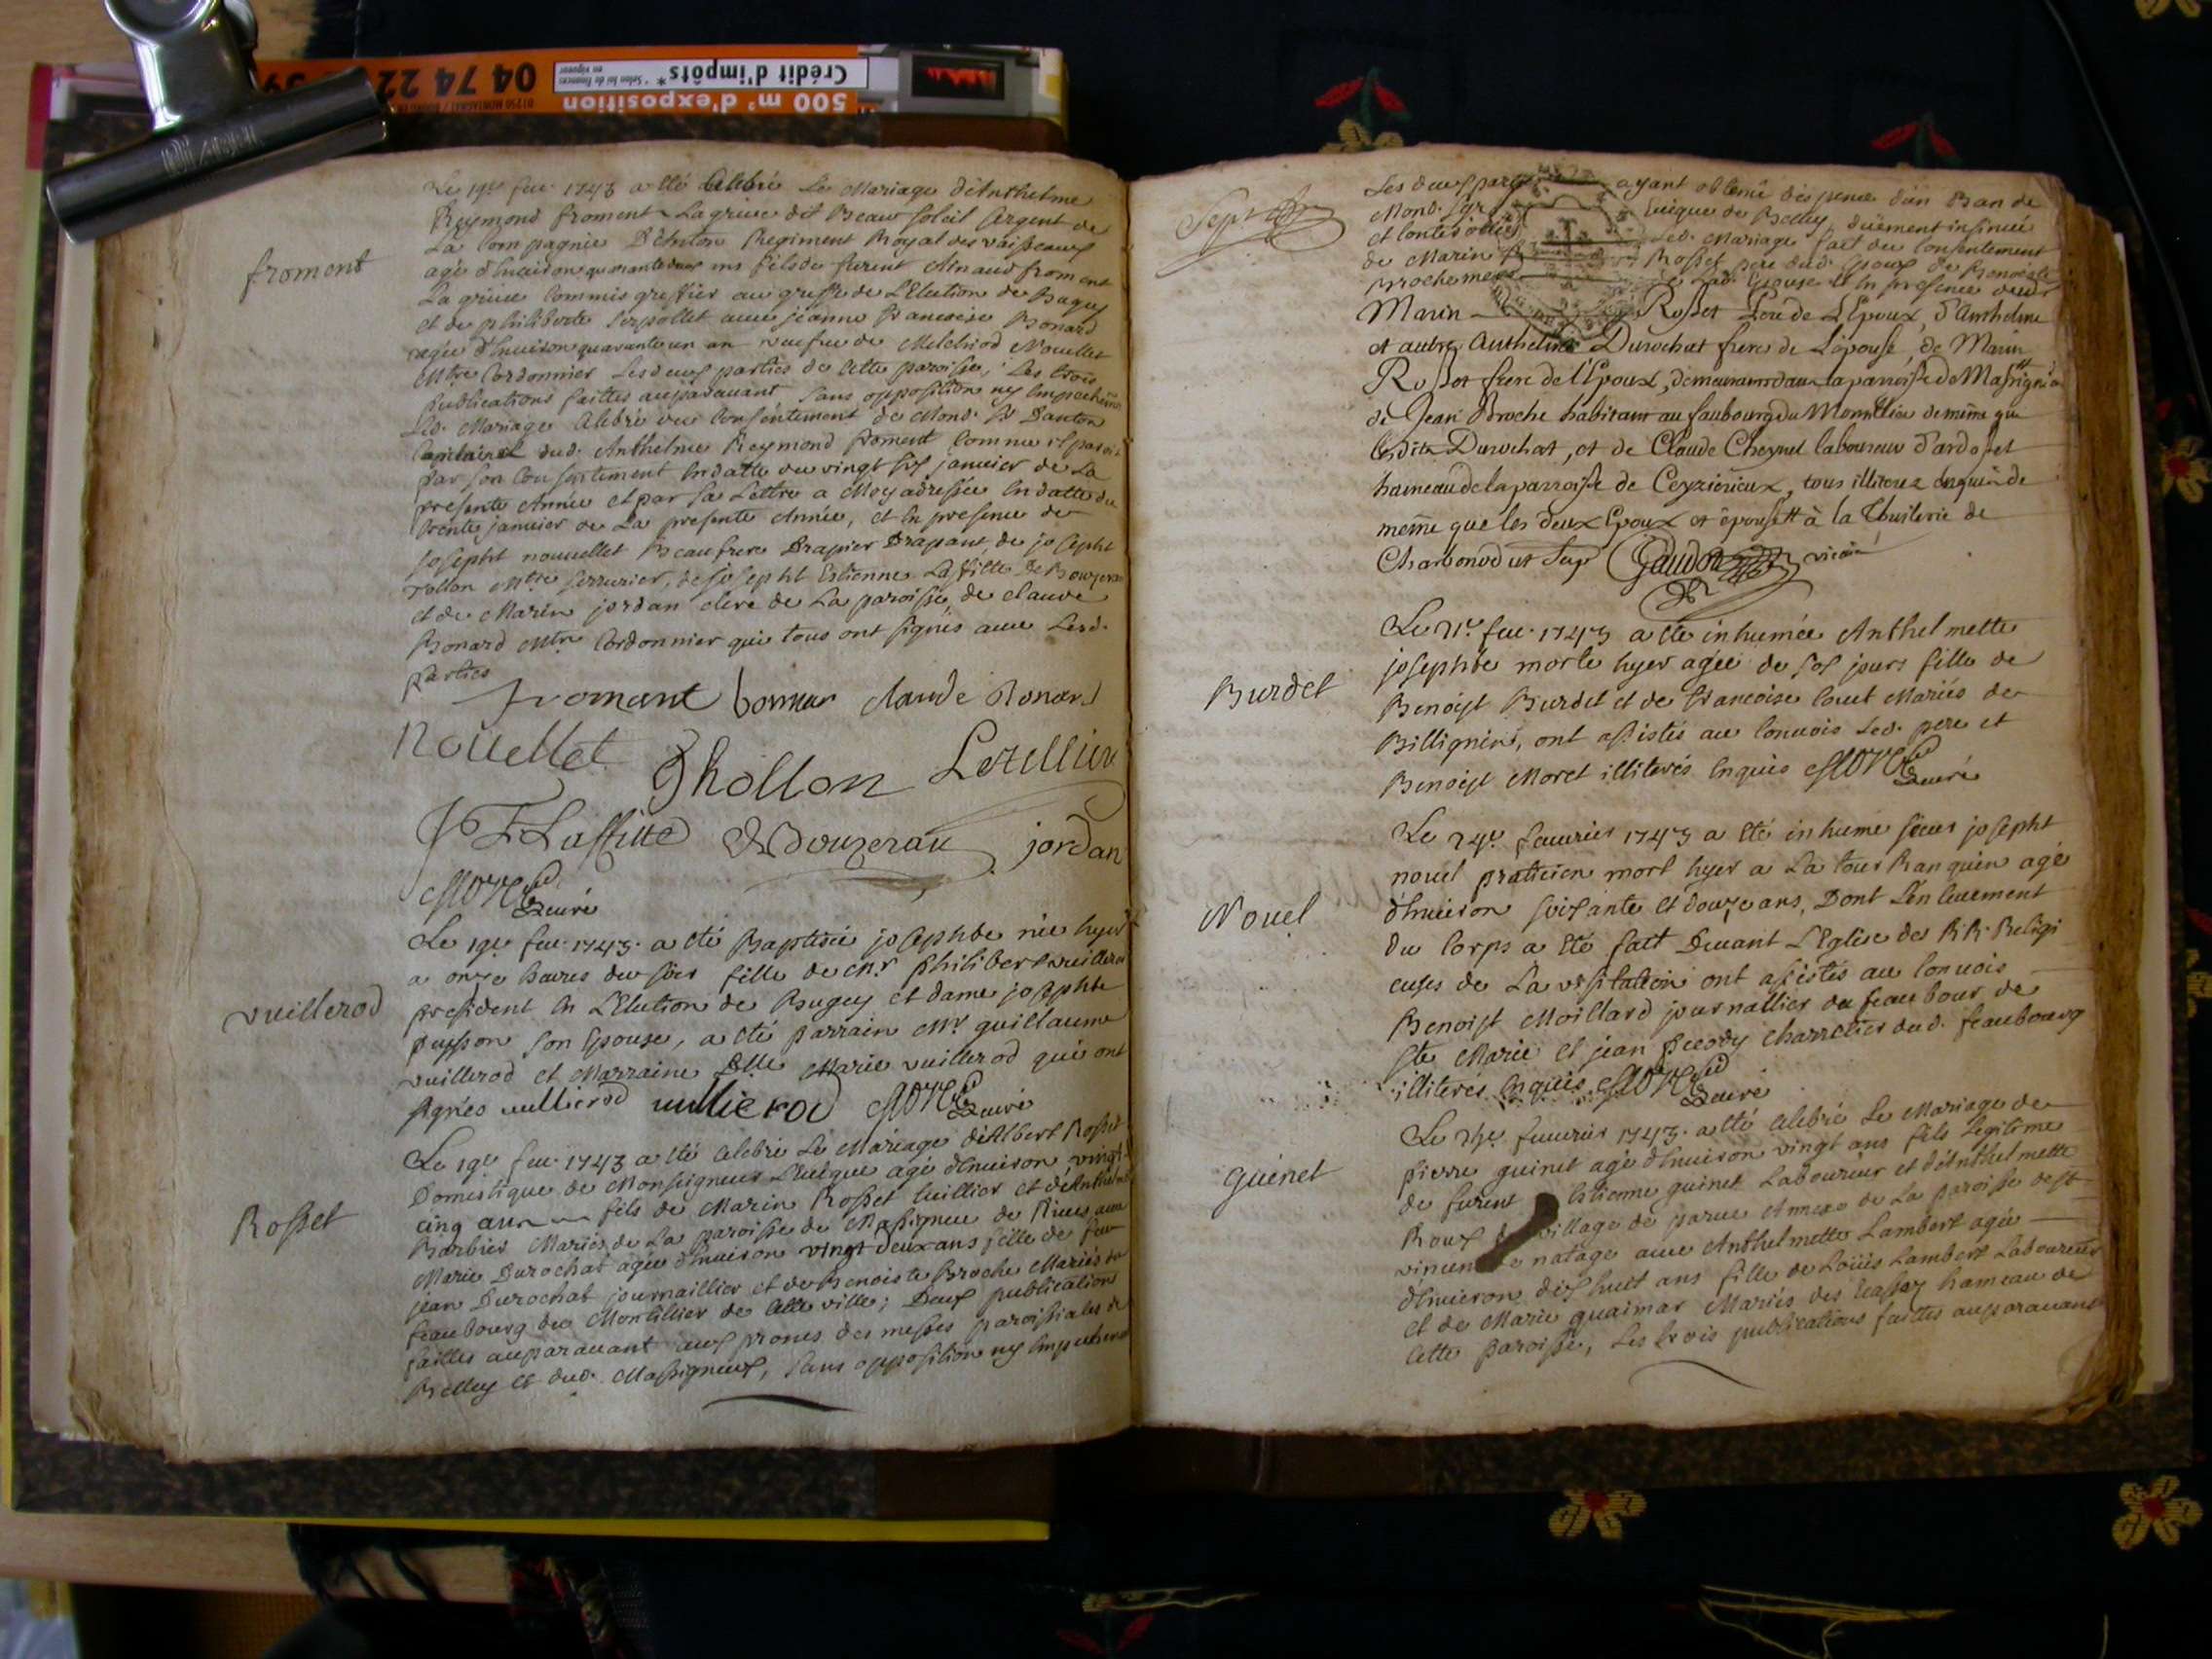 500 m² d'exposition
Crédit d'impôts*
04 74 22
froment
Le 19e feu. 1743 a été Celebré Le Mariage d'Anthelme
Reymond froment Lagrive dit Beau soleil sergent de
La Compagnie D'Anton Regiment Royal des vaisseaux
agé d'enuiron quarante deux ans fils de furent Arnaud froment
La griue Commis greffier au greffe de L'Election de Bugey
et de philiberte Serpollet auec jeanne francoise Bonard
agée d'enuiron quarante un an veufue de Melchiod Nouellet
Mtre Cordonnier Les deux parties de Cette paroisse, Les trois
publications faittes auparauant sans opposition ny Empechemt
Led. Mariage Celebré du Consentement de Mond. Sr Danton
Capitaine dud. Anthelme Reymond froment Comme il paroit
par son Consentement en datte du vingt six januier de La
presente Année et par sa Lettre a Moy adressée en datte du
trente januier de La presente Année, et en presence de
josepht nouuellet Beaufrere Drapier Drapant, de josepht
Tollon Mtre serrurier, de josepht Estienne Laffitte De Bouzerau
et de Marin jordan clerc de La paroisse, de claude
Bonard Mtre Cordonnier qui tous ont signés auec Lesd.
parties
froment bonnar claude Bonard
Nouellet Thollon Letellier
J E Laffitte De Bouzerau jordan
Moret curé
vuillerod
Le 19e feu. 1743. a été Baptisée josephte née hyer
a onze heures du soir fille de Mr philibert vuillerod
president en L'Election de Bugey et dame josephte
puysson son Epouse, a été parrain Mr guillaume
vuillerod et Marraine Dlle Marie vuillerod qui ont
signés vullierod vullierod Moret curé
Rosset
Le 19e feu. 1743 a été Celebré Le Mariage d'Albert Rosset
Domestique de Monseigneur L'Eueque agé d'enuiron vingt
cinq ans fils de Marin Rosset tuillier et d'Anthelmette
Barbier Mariés de La paroisse de Massigneu de Riues auec
Marie Durochat agée d'enuiron vingt deux ans fille de feu
jean Durochat journaillier et de Benoiste Broche Mariés du
feaubourg du Montillier de Cette ville; Deux publications
faittes auparauant aux prones des messes paroissiales de
Belley et dud. Massigneux, sans opposition ny Empechemt
Sept
Les deux parties ayant obtenu dispence d'un Ban de
Mond. Sgr Eueque de Belley duement insinuée
et Controllée Led. Mariage fait du Consentement
de Marin Rosset pere dud. Epoux de Benoiste
Broche mere de lad. Epouse et En presence dudt
Marin Rosset Pere de L'Epoux, d'Anthelme
et autre Anthelme Durochat freres de L'épouse, de Marin
Rosset frere de l'Epoux, demeurants dans la parroisse de Massignieu
de Jean Broche habitant au faubourg du Montillier de même que
lesdits Durochat, et de Claude Cheynel laboureur d'ardosset
hameau de la parroisse de Ceyzerieux, tous illiterez enquis de
même que les deux Epoux et épouse à la Thuilerie de
Charbonod ut Sup Gaudon vicaire
Burdet
Le 21e feu. 1743 a été inhumée Anthelmette
josephte morte hyer agée de six jours fille de
Benoist Burdet et de francoise Cout Mariés de
Billignin, ont assistés au Conuois Led. pere et
Benoist Moret illiterés Enquis Moret curé
Nouel
Le 24e feaurier 1743 a été inhumé sieur josepht
nouel praticien mort hyer a La tour Ranquin agé
d'enuiron soixante et douze ans, Dont L'enleuement
du Corps a été fait Deuant L'Eglise des RR. Religi
euses de La visitation ont assistés au Conuois
Benoist Moillard journallier du feaubour de
Ste Marie et jean peody Charretier dud. feaubourg
illiterés Enquis Moret curé
guenet
Le 25e feaurier 1743. a été Celebré Le Mariage de
pierre guinet agé d'enuiron vingt ans fils Legitime
de furent Estienne guinet Laboureur et d'Anthelmette
Roux du village de parue Annexe de La paroisse de St
vincent de natage auec Anthelmette Lambert agée
d'enuiron dix huit ans fille de Loüis Lambert Laboureur
et de Marie guaimar Mariés des Eassey hameau de
Cette Paroisse, Les trois publications faittes auparauant